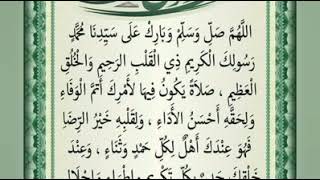 اللَّهُمَّ صَلِّ وَسَلِّمْ وَبَارِكْ عَلَى سَيِّدِنَا مُحَمَّدٍ
رَسُولِكَ الْكَرِيمِ ذِي الْقَلْبِ الرَّحِيمِ وَالْخُلُقِ
الْعَظِيمِ ، صَلَاةً يَكُونُ فِيهَا لِأَمْرِكَ أَتَمُّ الْوَفَاءِ
وَلِحَقِّهِ أَحْسَنُ الْأَدَاءِ ، وَلِقَلْبِهِ خَيْرُ الرِّضَا
فَهُوَ عِنْدَكَ أَهْلٌ لِكُلِّ حَمْدٍ وَثَنَاءٍ ، وَعِنْدَ